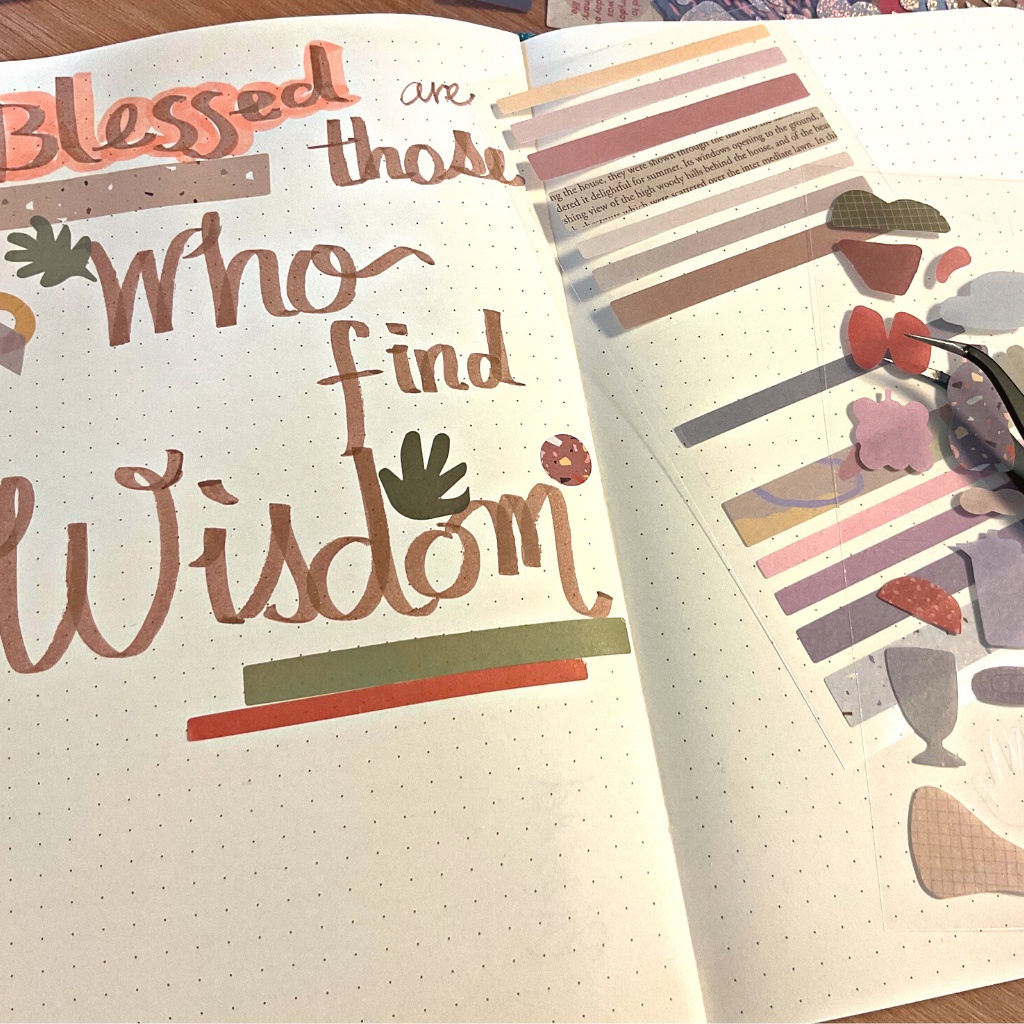 Blessed are
those
who
find
Wisdom
ng the house, they were shown through the hall into the
dered it delightful for summer. Its windows opening to the ground,
shing view of the high woody hills behind the house, and of the beau
which were scattered over the inter mediate lawn. In thi